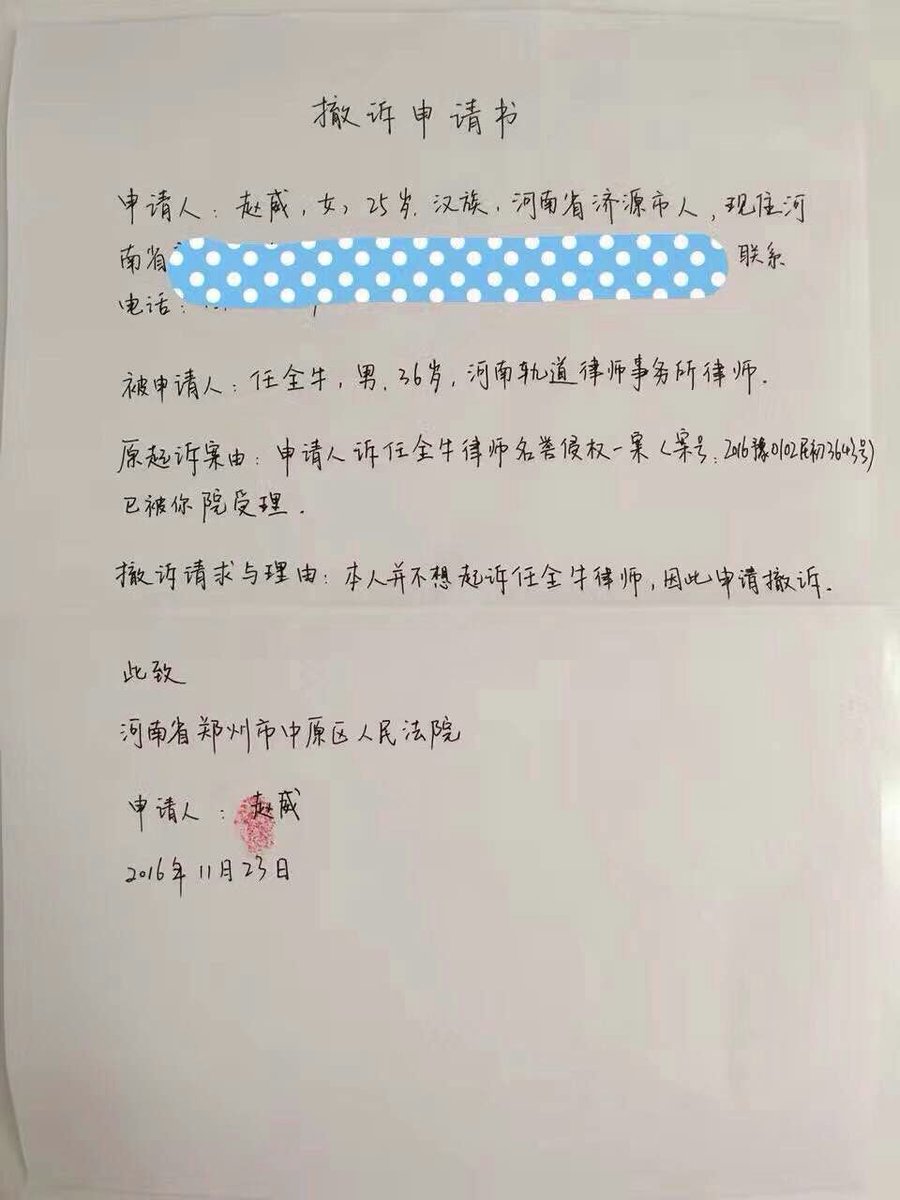 撤诉申请书
申请人：赵威，女，25岁，汉族，河南省济源市人，现住河
南省 联系
电话：
被申请人：任全牛，男，36岁，河南轨道律师事务所律师。
原起诉案由：申请人诉任全牛律师名誉侵权一案（案号：2016豫0102民初3643号）
已被你院受理。
撤诉请求与理由：本人并不想起诉任全牛律师，因此申请撤诉。
此致
河南省郑州市中原区人民法院
申请人：赵威
2016年11月23日